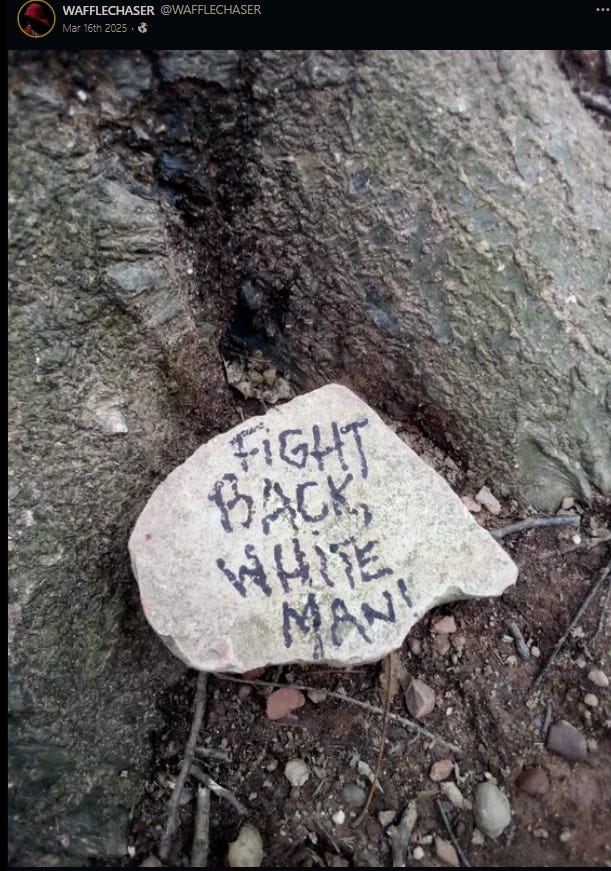 WAFFLECHASER @WAFFLECHASER
Mar 16th 2025 ·
FiGHT
BACK,
WHITE
MAN!